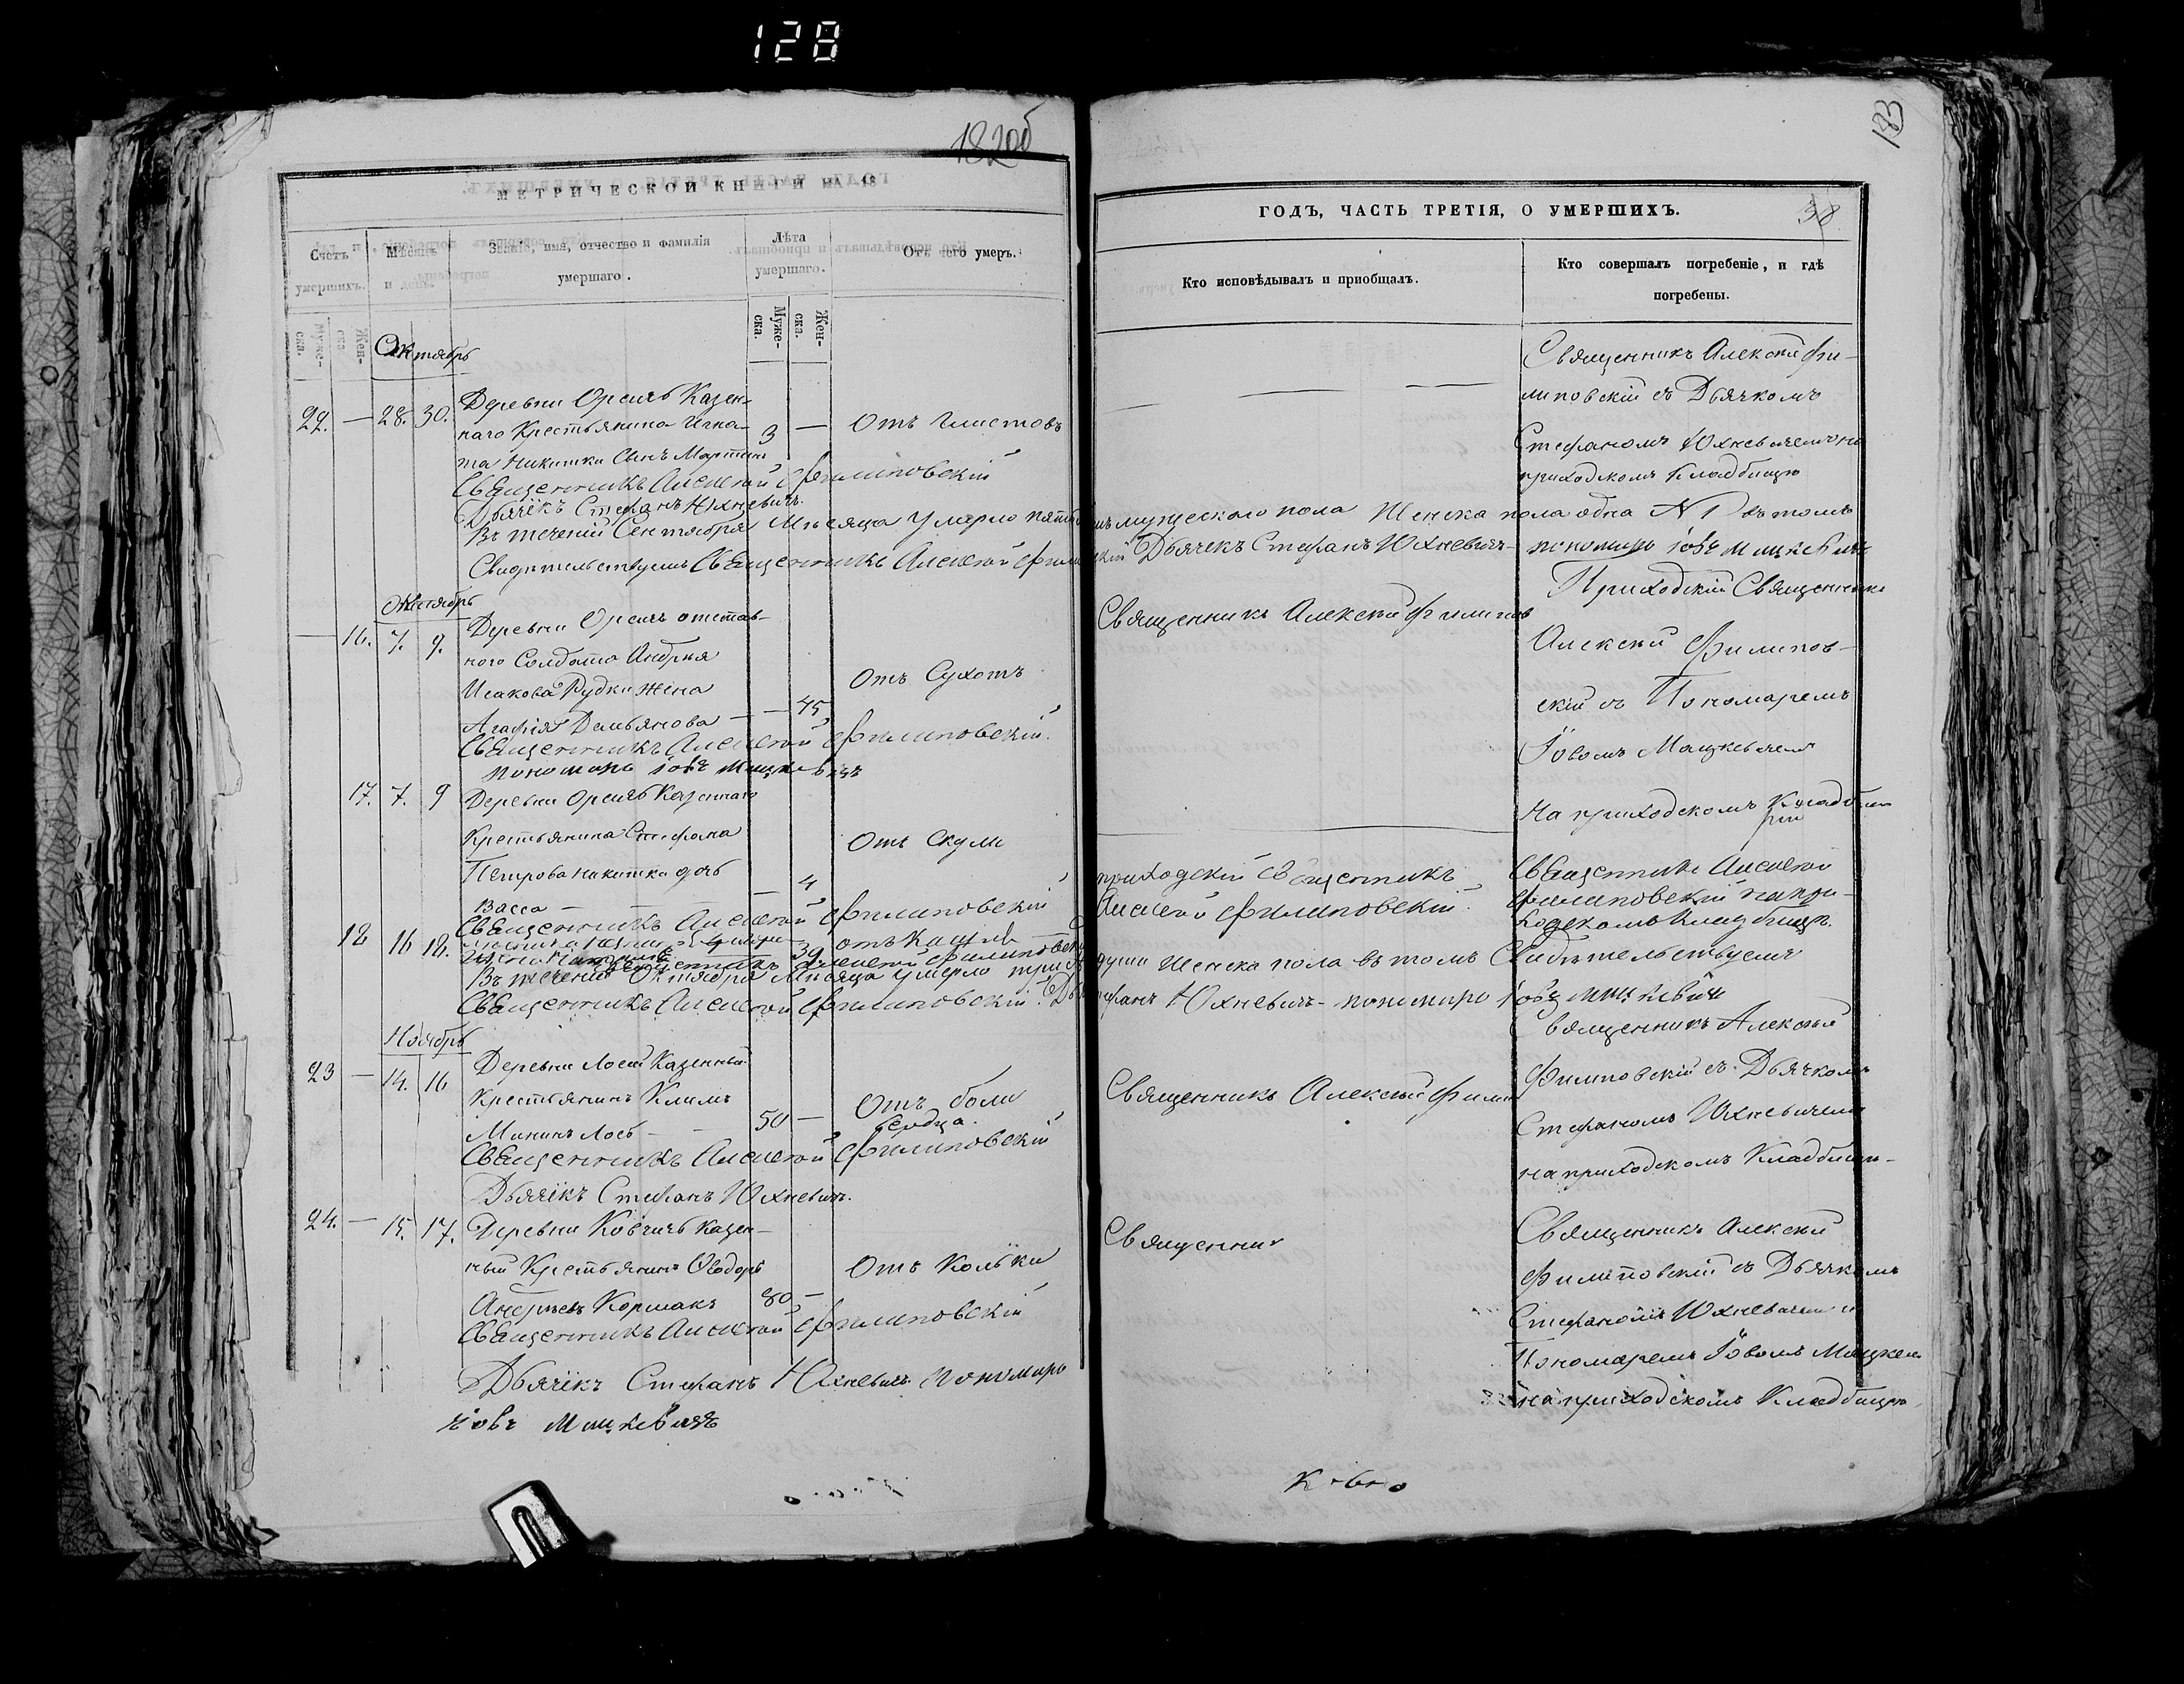 128
182 об
МЕТРИЧЕСКОЙ КНИГИ НА 18
Счетъ умершихъ.
Мѣсяцъ и день.
Званіе, имя, отчество и фамилія умершаго.
Лѣта умершаго.
Отъ чего умеръ.
Муже-ска.
Жен-ска.
Муже-ска.
Жен-ска.
Октябрь
22. — 28. 30. Деревни Орсичъ Казен-
наго Крестьянина Игна-
та Никитки Сынъ Мартинъ
3 — Отъ глистовъ
Священникъ Алексѣй Филиповскій
Дьячекъ Стефанъ Юхневичъ.
Въ теченіи Сентября Мѣсяца умерло мужескаго пола Женска пола одна № 1 въ томъ
Свидѣтельствуемъ Священникъ Алексѣй Дьячекъ Стефанъ Юхневичъ – пономарь Іовъ Мицкевичъ
Октябрь
— 16. 7. 9. Деревни Орсичъ отстав-
ного Солдата Андрея
Исакова Рудки жена
Агафія Демьянова — — 45
Отъ Сухотъ
Священникъ Алексѣй Филиповскій.
пономарь Іовъ Мицкевичъ
17. 7. 9 Деревни Орсичъ Казеннаго
Крестьянина Стефана
Петрова Никитки дочь
Васса — — — 4
Отъ Скули
Священникъ Алексѣй Филиповскій
18 16 18.
39 отъ Кашля
Священникъ Алексѣй Филиповскій
Въ теченіи Октября Мѣсяца умерло три души Женска пола въ томъ Свидѣтельствуемъ
Священникъ Алексѣй Филиповскій. Юхневичъ – пономарь Іовъ Мицкевичъ
Ноябрь
23 — 14. 16 Деревни Лоси Казенный
Крестьянинъ Климъ
Мининъ Лось — — 50 —
Отъ боли
Сердца.
Священникъ Алексѣй Филиповскій
Дьячекъ Стефанъ Юхневичъ.
24. — 15. 17. Деревни Ковчичъ казен-
ный Крестьянинъ Ѳеодоръ
Андреевъ Кормакъ 80 —
Отъ Кольки
Священникъ Алексѣй Филиповскій
Дьячекъ Стефанъ Юхневичъ Пономарь
Іовъ Мицкевичъ
183
38
ГОДЪ, ЧАСТЬ ТРЕТІЯ, О УМЕРШИХЪ.
Кто исповѣдывалъ и пріобщалъ.
Кто совершалъ погребеніе, и гдѣ погребены.
Священникъ Алексѣй Фи-
липовскій съ Дьячкомъ
Стефаномъ Юхневичемъ на
приходскомъ Кладбищѣ
Священникъ Алексѣй Филипов
Приходскій Священникъ
Алексѣй Филипов-
скій съ Пономаремъ
Іовомъ Мацкевичемъ
На приходскомъ Кладби
щѣ
приходскій Священникъ
Алексѣй Филиповскій.
Священникъ Алексѣй
Филиповскій на при-
ходскомъ Кладбищѣ.
Священникъ Алексѣй Фили
Священникъ Алексѣй
Филиповскій съ Дьячкомъ
Стефаномъ Юхневичемъ
на приходскомъ Кладбищѣ-
Священник
Священникъ Алексѣй
Филиповскій съ Дьячкомъ
Стефаномъ Юхневичемъ и
Пономаремъ Іовомъ Мацкев
на приходскомъ Кладбищѣ